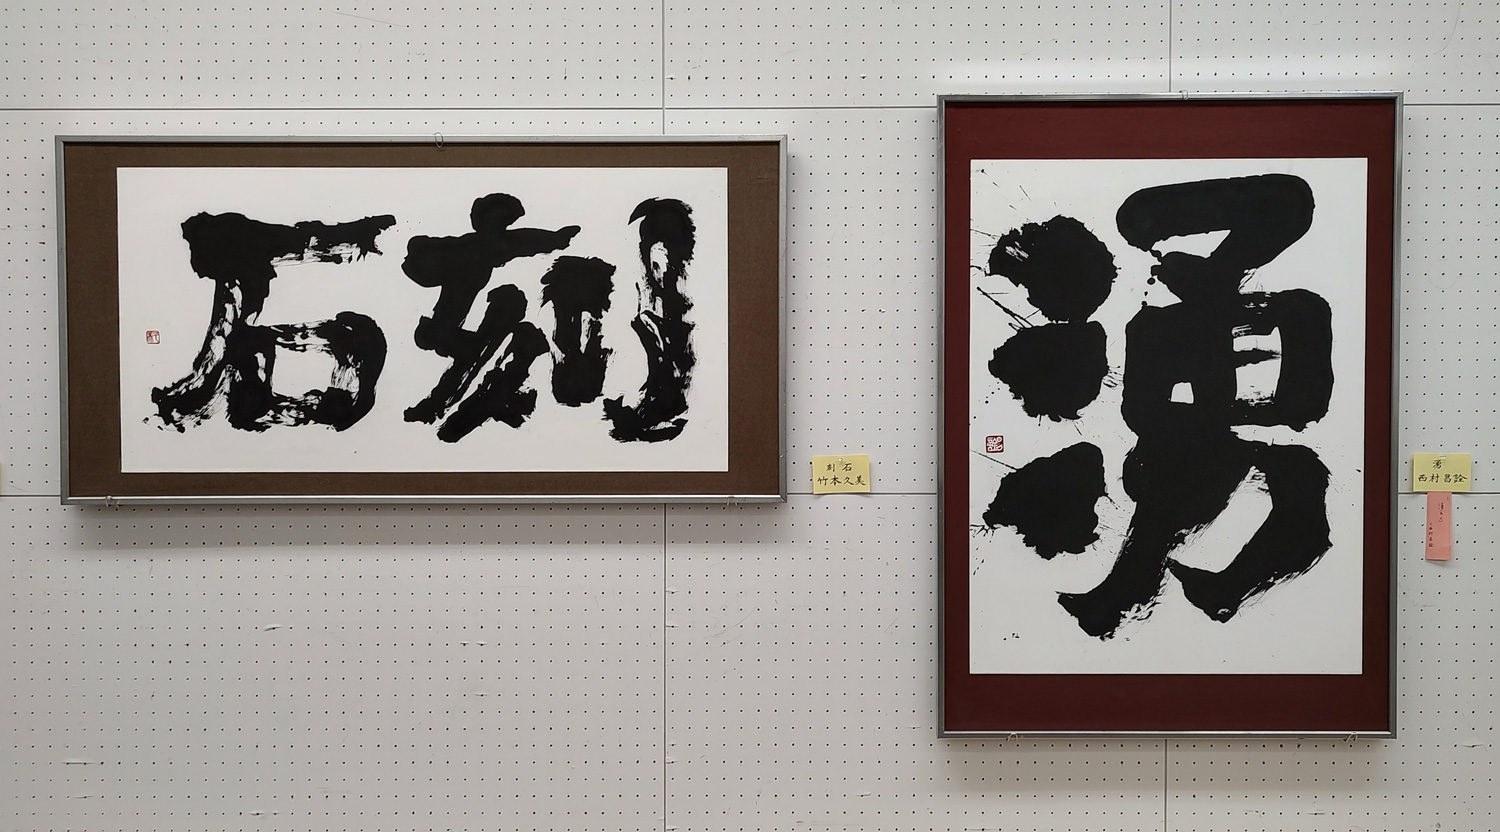 刻石
刻石
竹本久美
湧
湧
西村昌詮